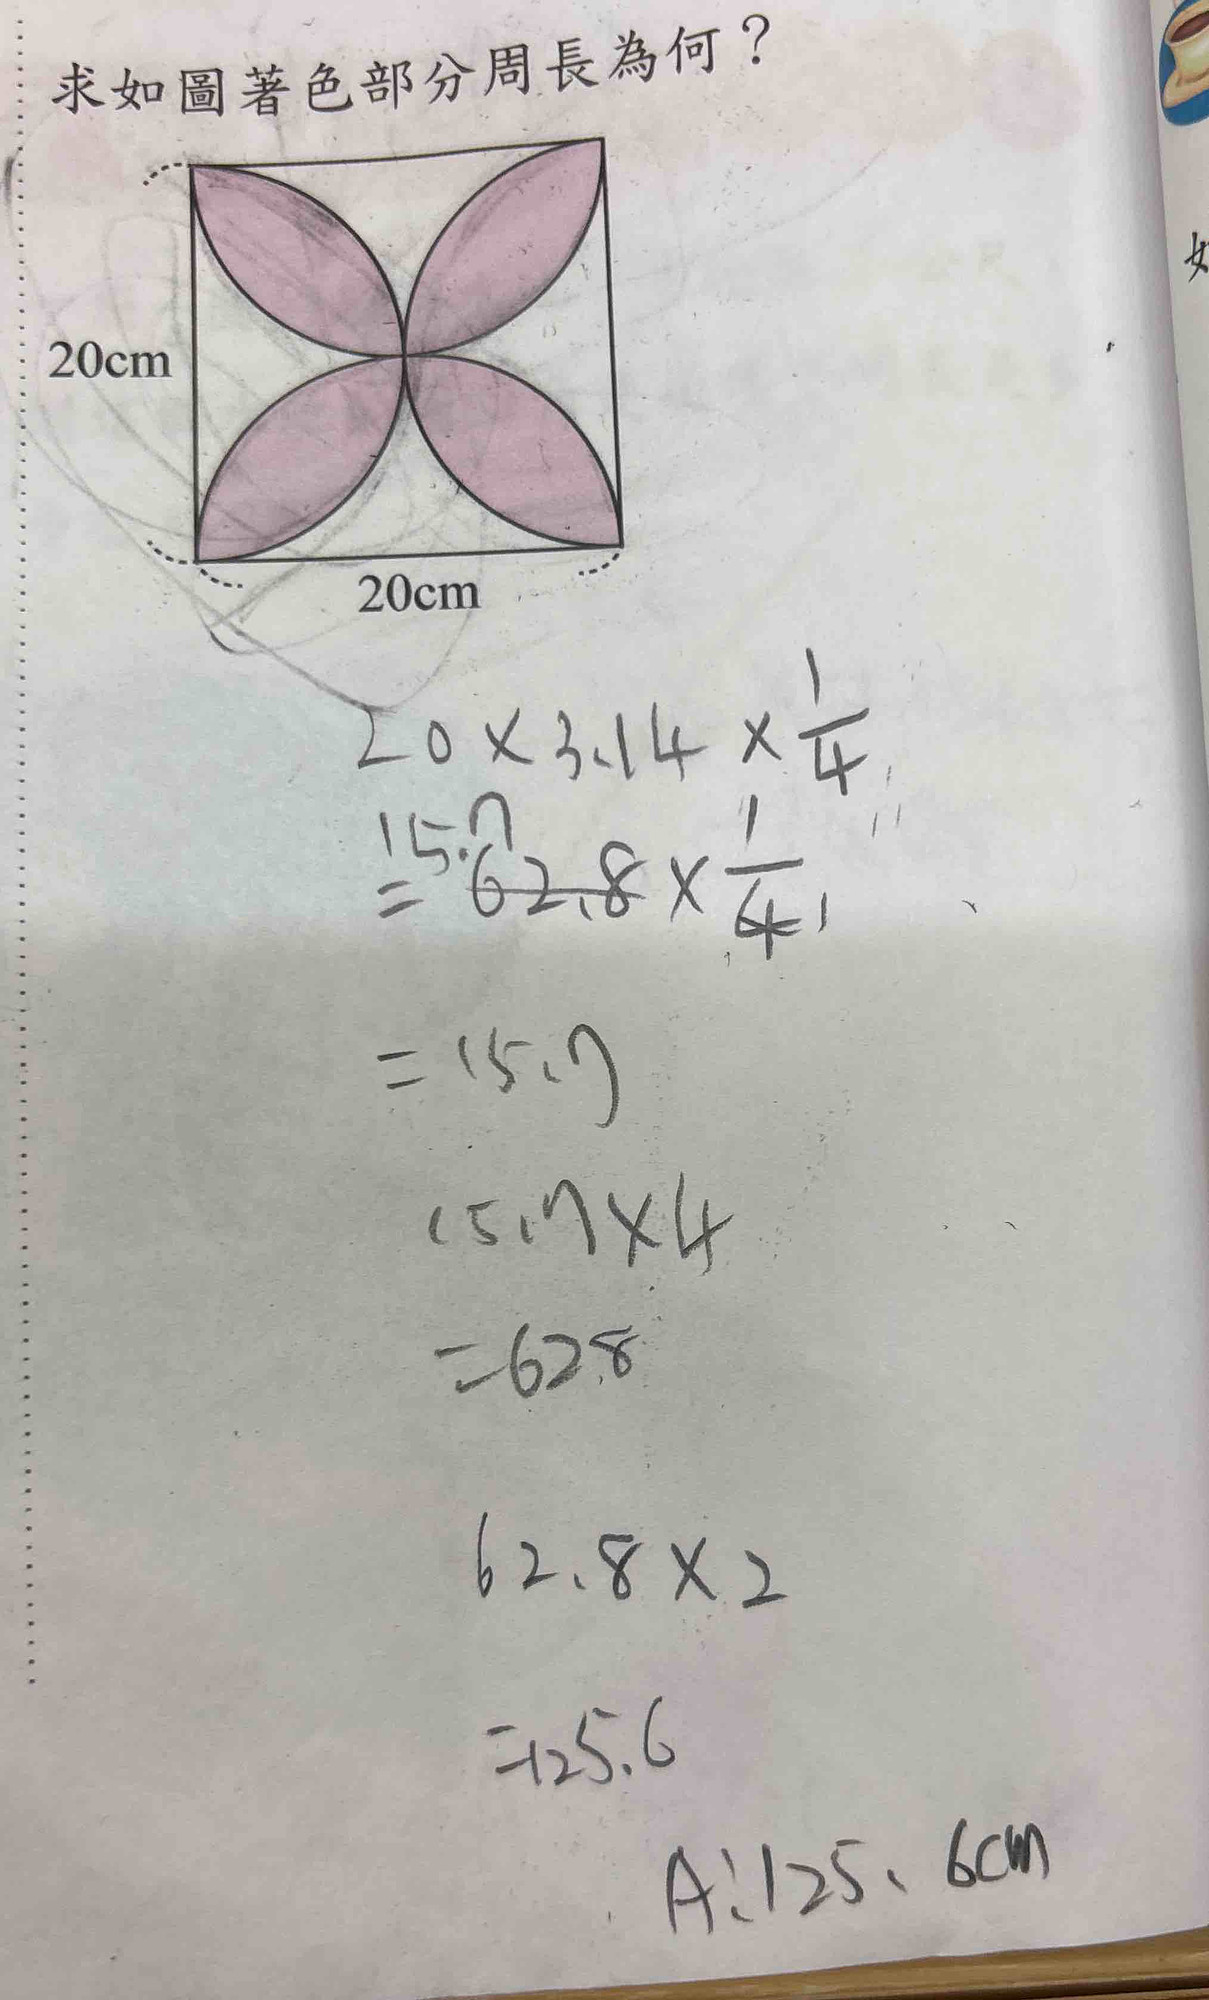 求如圖著色部分周長為何？
20cm
20cm
20 × 3.14 × 1/4
15.7
= 62.8 × 1/4 1
= 15.7
15.7 × 4
= 62.8
62.8 × 2
= 125.6
A:125.6cm